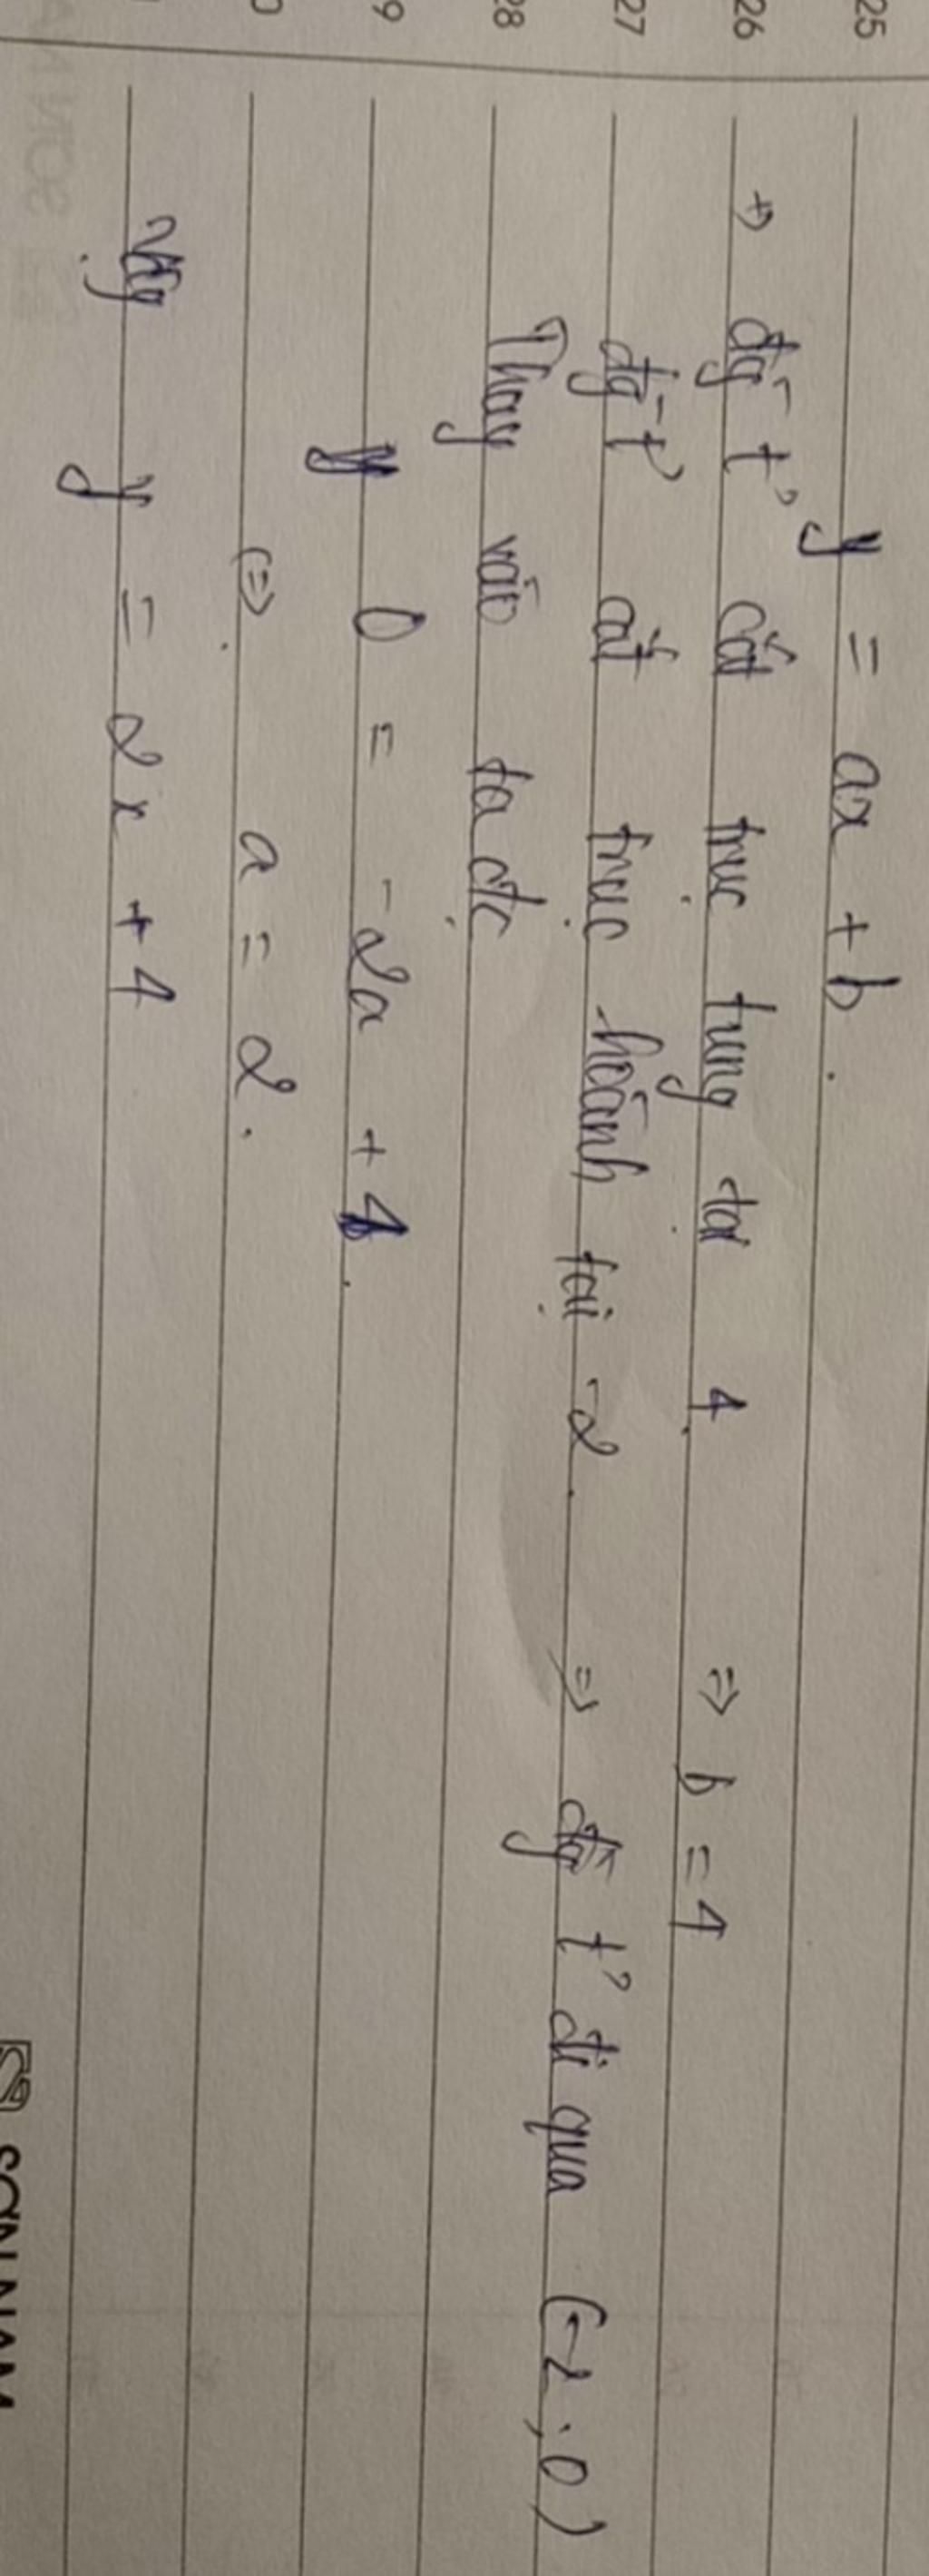 25
y = ax + b.
26 → đg⁻ t' cắt trục tung tại 4. ⇒ b = 4
27 đg⁻ t' cắt trục hoành tại -2. ⇒ đg⁻ t' đi qua (-2; 0)
28 Thay vào ta đc
9 0 = -2a + 4.
0 (⇒ a = 2.
Vậy y = 2x + 4
SƠN NAM